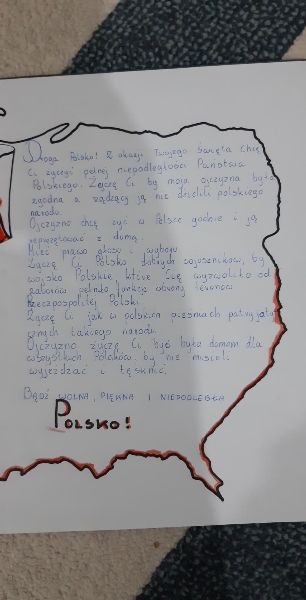 Droga Polsko! Z okazji Twojego święta chcę
Ci życzyć pełnej niepodległości Państwa
Polskiego. Życzę Ci by moja ojczyzna była
zgodna a rządzący ją nie dzielili polskiego
narodu.
Ojczyzno chcę żyć w Polsce godnie i ją
reprezętować z dumą.
Mieć prawo głosu i wyboru
Życzę Ci Polsko dobrych sojuszników, by
wojsko Polskie, które Cię wyzwoliło od
zaborów pełniło funkcję obrony terenów
Rzeczpospolitej Polski.
Życzę Ci jak w polskich pieśniach patryjoty
cznych takiego narodu.
Ojczyzno życzę Ci być była domem dla
wszystkich Polaków by nie musieli
wyjeżdżać i tęsknić.
BĄDŹ WOLNA, PIĘKNA I NIEPODLEGŁA
POLSKO!